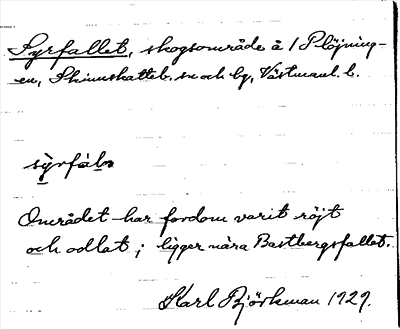 Syrfallet, skogsområde å 1 Plöjning-
en, Skinnskatteb. sn och bg, Västmanl. l.
sỳrfàlə
Området har fordom varit röjt
och odlat; ligger nära Bastbergsfallet.
Karl Björkman 1929.